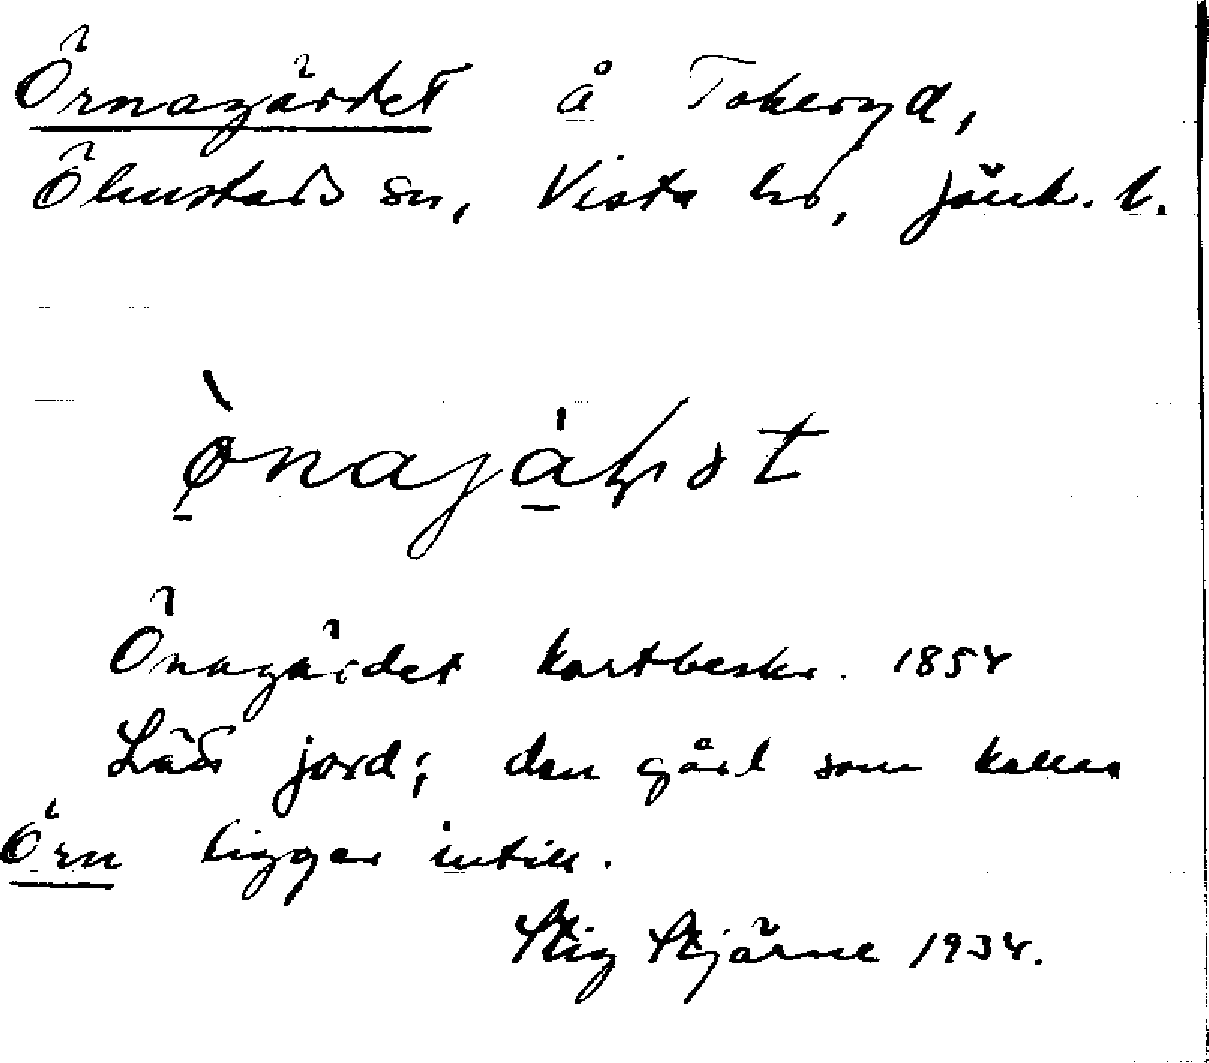 Örnagärdet å Tokeryd,
Ölmstads sn, Vista hd, Jönk. l.
Önagärdet kartbeskr. 1854
jord; den gård som kallas
Örn ligger intill.
Stig Stjärne 1934.